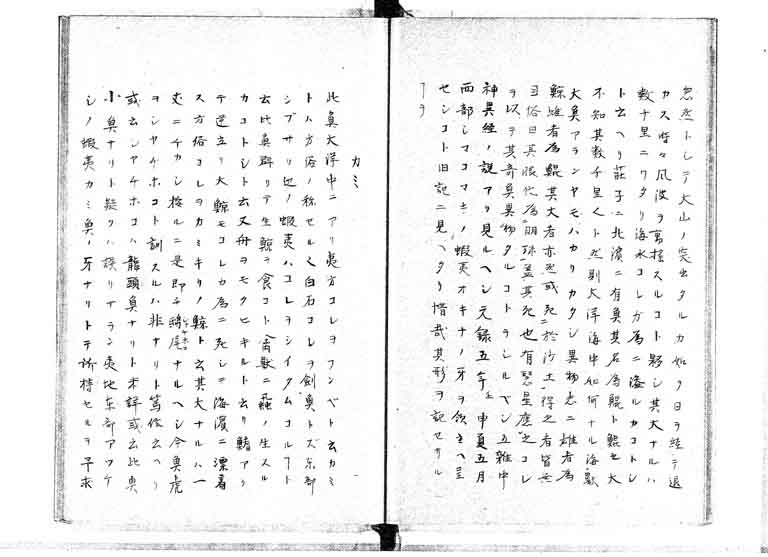 忽然トシテ大山ノ突出タルカ如ク日ヲ経テ退
カス時々風波ヲ起スルコト夥シ其大ナルハ
数十里ニワタリ海水コレカ為ニ溢ルカコトシ
ト云ヘリ荘子ニ北溟ニ有魚其名為鯤ト鯤之大
不知其数千里ト然則大洋海中如何ナル海獣
大魚アランヤモハカリカタシ異物志ニ雄者為
鯨雌者為鯢其大者亦然或死於沙土得之者皆無
目俗曰其眼化為明珠蓋其死也有彗星應之コレ
ヲ以テ其奇魚異物タルコトヲシルヘシ五雑中
神異経ノ説アリ見ルヘシ元録五年壬申夏五月
西部シマコマキノ蝦夷オキナノ牙ヲ領主ヘ呈
センコト旧記ニ見ヘタリ惜哉其形ヲ記セサル
コヲ
カミ
此魚大洋中ニアリ夷方コレヲフンベト云カミ
トハ方俗ノ称セル也白石コレヲ剣魚トス東部
シブサリ辺ノ蝦夷ハコレヲシイタムコルアト
云此魚群リテ生鯨ヲ食コト禽獣ニ蟲ノ生スル
カコトシト云又舟ヲモクヒキルト云リ鰭アリ
テ逆立リ大鯨モコレカ為ニ死シテ海濱ニ漂着
ス方俗コレヲカミキリノ鯨ト云其大ナルハ一
丈ニチカシ按ルニ是即チ鴟尾ナルヘシ今魚虎
ヲシヤチホコト訓スルハ非ナリト篤信云ヘリ
或云シヤチホコハ龍頭魚ナリト未詳或云此魚
小魚ナリト疑フハ誤リナラン夷地東部アツケ
シノ蝦夷カミ魚ノ牙ナリトテ所持セルヲ予求